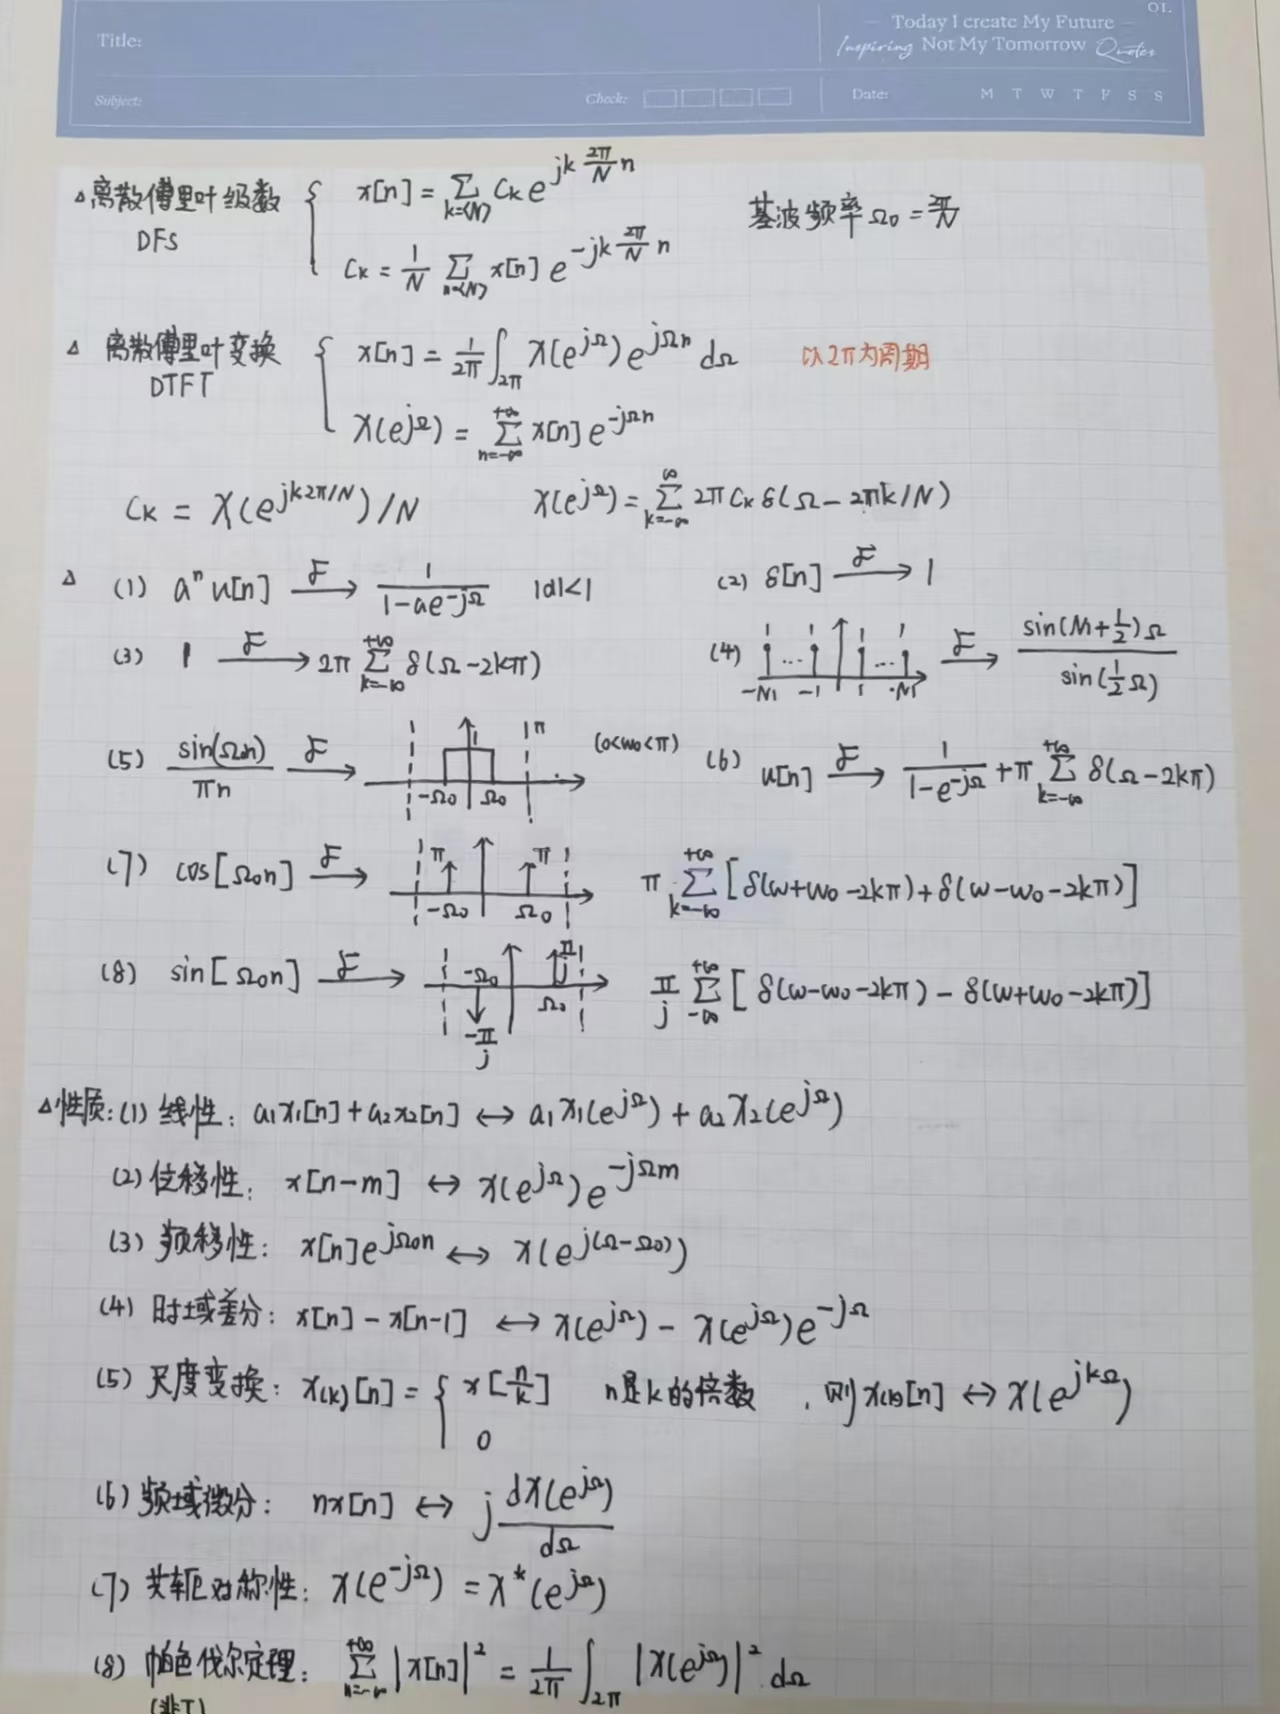 OL
Title:
Today I create My Future
Inspiring Not My Tomorrow Quotes
Subject:
Check:
Date:
M T W T F S S
△离散傅里叶级数 { x[n] = ∑_{k=⟨N⟩} C_k e^{jk 2π/N n}   基波频率 Ω₀ = 2π/N
DFS   C_k = 1/N ∑_{n=⟨N⟩} x[n] e^{-jk 2π/N n}
△ 离散傅里叶变换 { x[n] = 1/2π ∫_{2π} X(e^{jΩ}) e^{jΩn} dΩ   以2π为周期
DTFT   X(e^{jΩ}) = ∑_{n=-∞}^{+∞} x[n] e^{-jΩn}
C_k = X(e^{jk2π/N})/N   X(e^{jΩ}) = ∑_{k=-∞}^{∞} 2π C_k δ(Ω - 2πk/N)
△ (1) aⁿ u[n] —F→ 1/(1-ae^{-jΩ})   |a|<1   (2) δ[n] —F→ 1
(3) 1 —F→ 2π ∑_{k=-∞}^{+∞} δ(Ω-2kπ)   (4) 1 1 1 1 ... ... -N1 -1 1 N1 —F→ sin(N1+1/2)Ω / sin(1/2 Ω)
(5) sin(Ω₀n)/πn —F→ 1 π -Ω₀ Ω₀ (0<w₀<π)   (6) u[n] —F→ 1/(1-e^{-jΩ}) + π ∑_{k=-∞}^{+∞} δ(Ω-2kπ)
(7) cos[Ω₀n] —F→ π π -Ω₀ Ω₀   π ∑_{k=-∞}^{+∞} [δ(w+w₀-2kπ)+δ(w-w₀-2kπ)]
(8) sin[Ω₀n] —F→ -Ω₀ π/j Ω₀ -π/j   π/j ∑_{-∞}^{+∞} [δ(w-w₀-2kπ) - δ(w+w₀-2kπ)]
△性质: (1) 线性: a₁x₁[n]+a₂x₂[n] ↔ a₁X₁(e^{jΩ}) + a₂X₂(e^{jΩ})
(2) 位移性: x[n-m] ↔ X(e^{jΩ})e^{-jΩm}
(3) 频移性: x[n]e^{jΩ₀n} ↔ X(e^{j(Ω-Ω₀)})
(4) 时域差分: x[n] - x[n-1] ↔ X(e^{jΩ}) - X(e^{jΩ})e^{-jΩ}
(5) 尺度变换: x_{(k)}[n] = { x[n/k]   n是k的倍数 , 则 x_{(k)}[n] ↔ X(e^{jkΩ})
0
(6) 频域微分: nx[n] ↔ j dX(e^{jΩ})/dΩ
(7) 共轭对称性: X(e^{-jΩ}) = X*(e^{jΩ})
(8) 帕色伐尔定理: ∑_{n=-∞}^{+∞} |x[n]|² = 1/2π ∫_{2π} |X(e^{jΩ})|² dΩ
(非T)